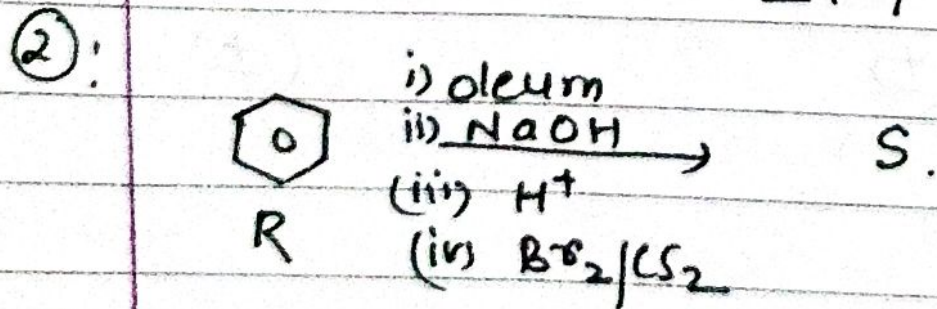 ②:
i) oleum
ii) NaOH
(iii) H⁺
(iv) Br₂/CS₂
R
S.